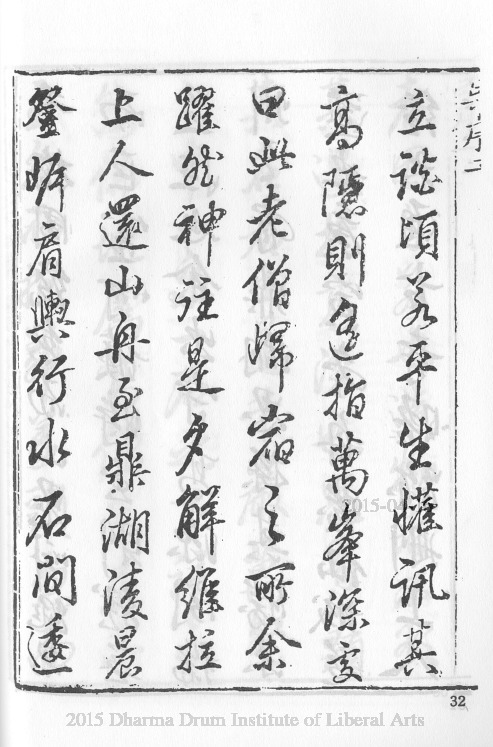 序二
立談頃若平生懽訊其
高隱則遙指萬峯深處
曰此老僧歸宿之所余
躍然神往是夕解維拉
上人還山舟至鼎湖凌晨
登岸肩輿行水石間逶
2015-0
32
2015 Dharma Drum Institute of Liberal Arts